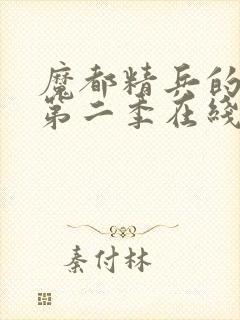 魔都精兵的
第二季在线
秦付林